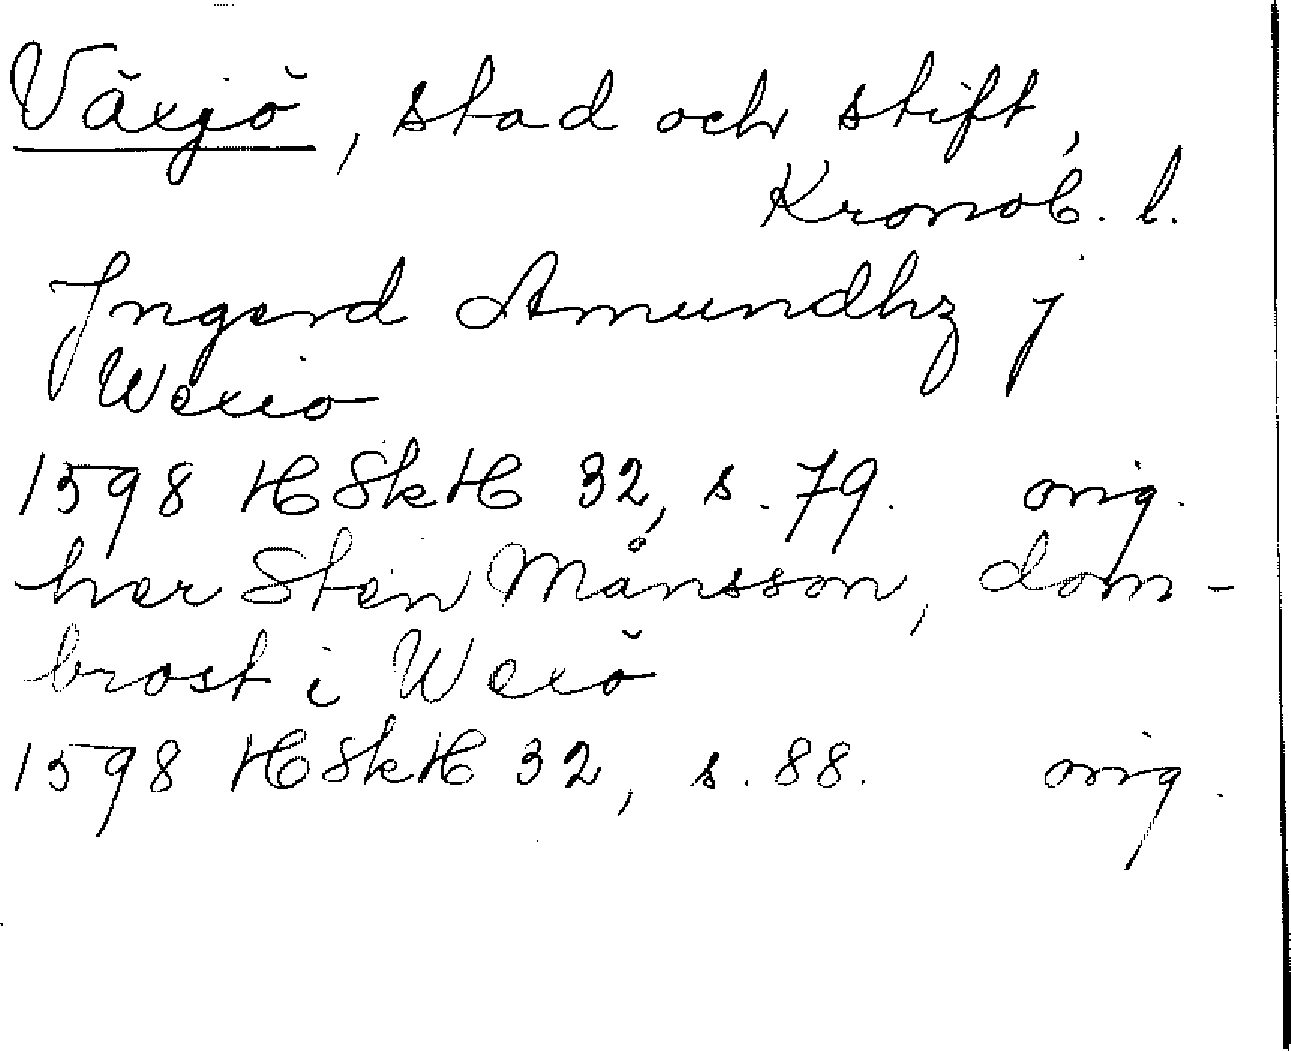 Växjö, stad och stift,
Kronob. l.
Jngerd Amundhz j
Wexio
1598 HSkH 32, s. 79. orig.
her Sten Månsson, dom-
brost i Wexö
1598 HSkH 32, s. 88. orig.